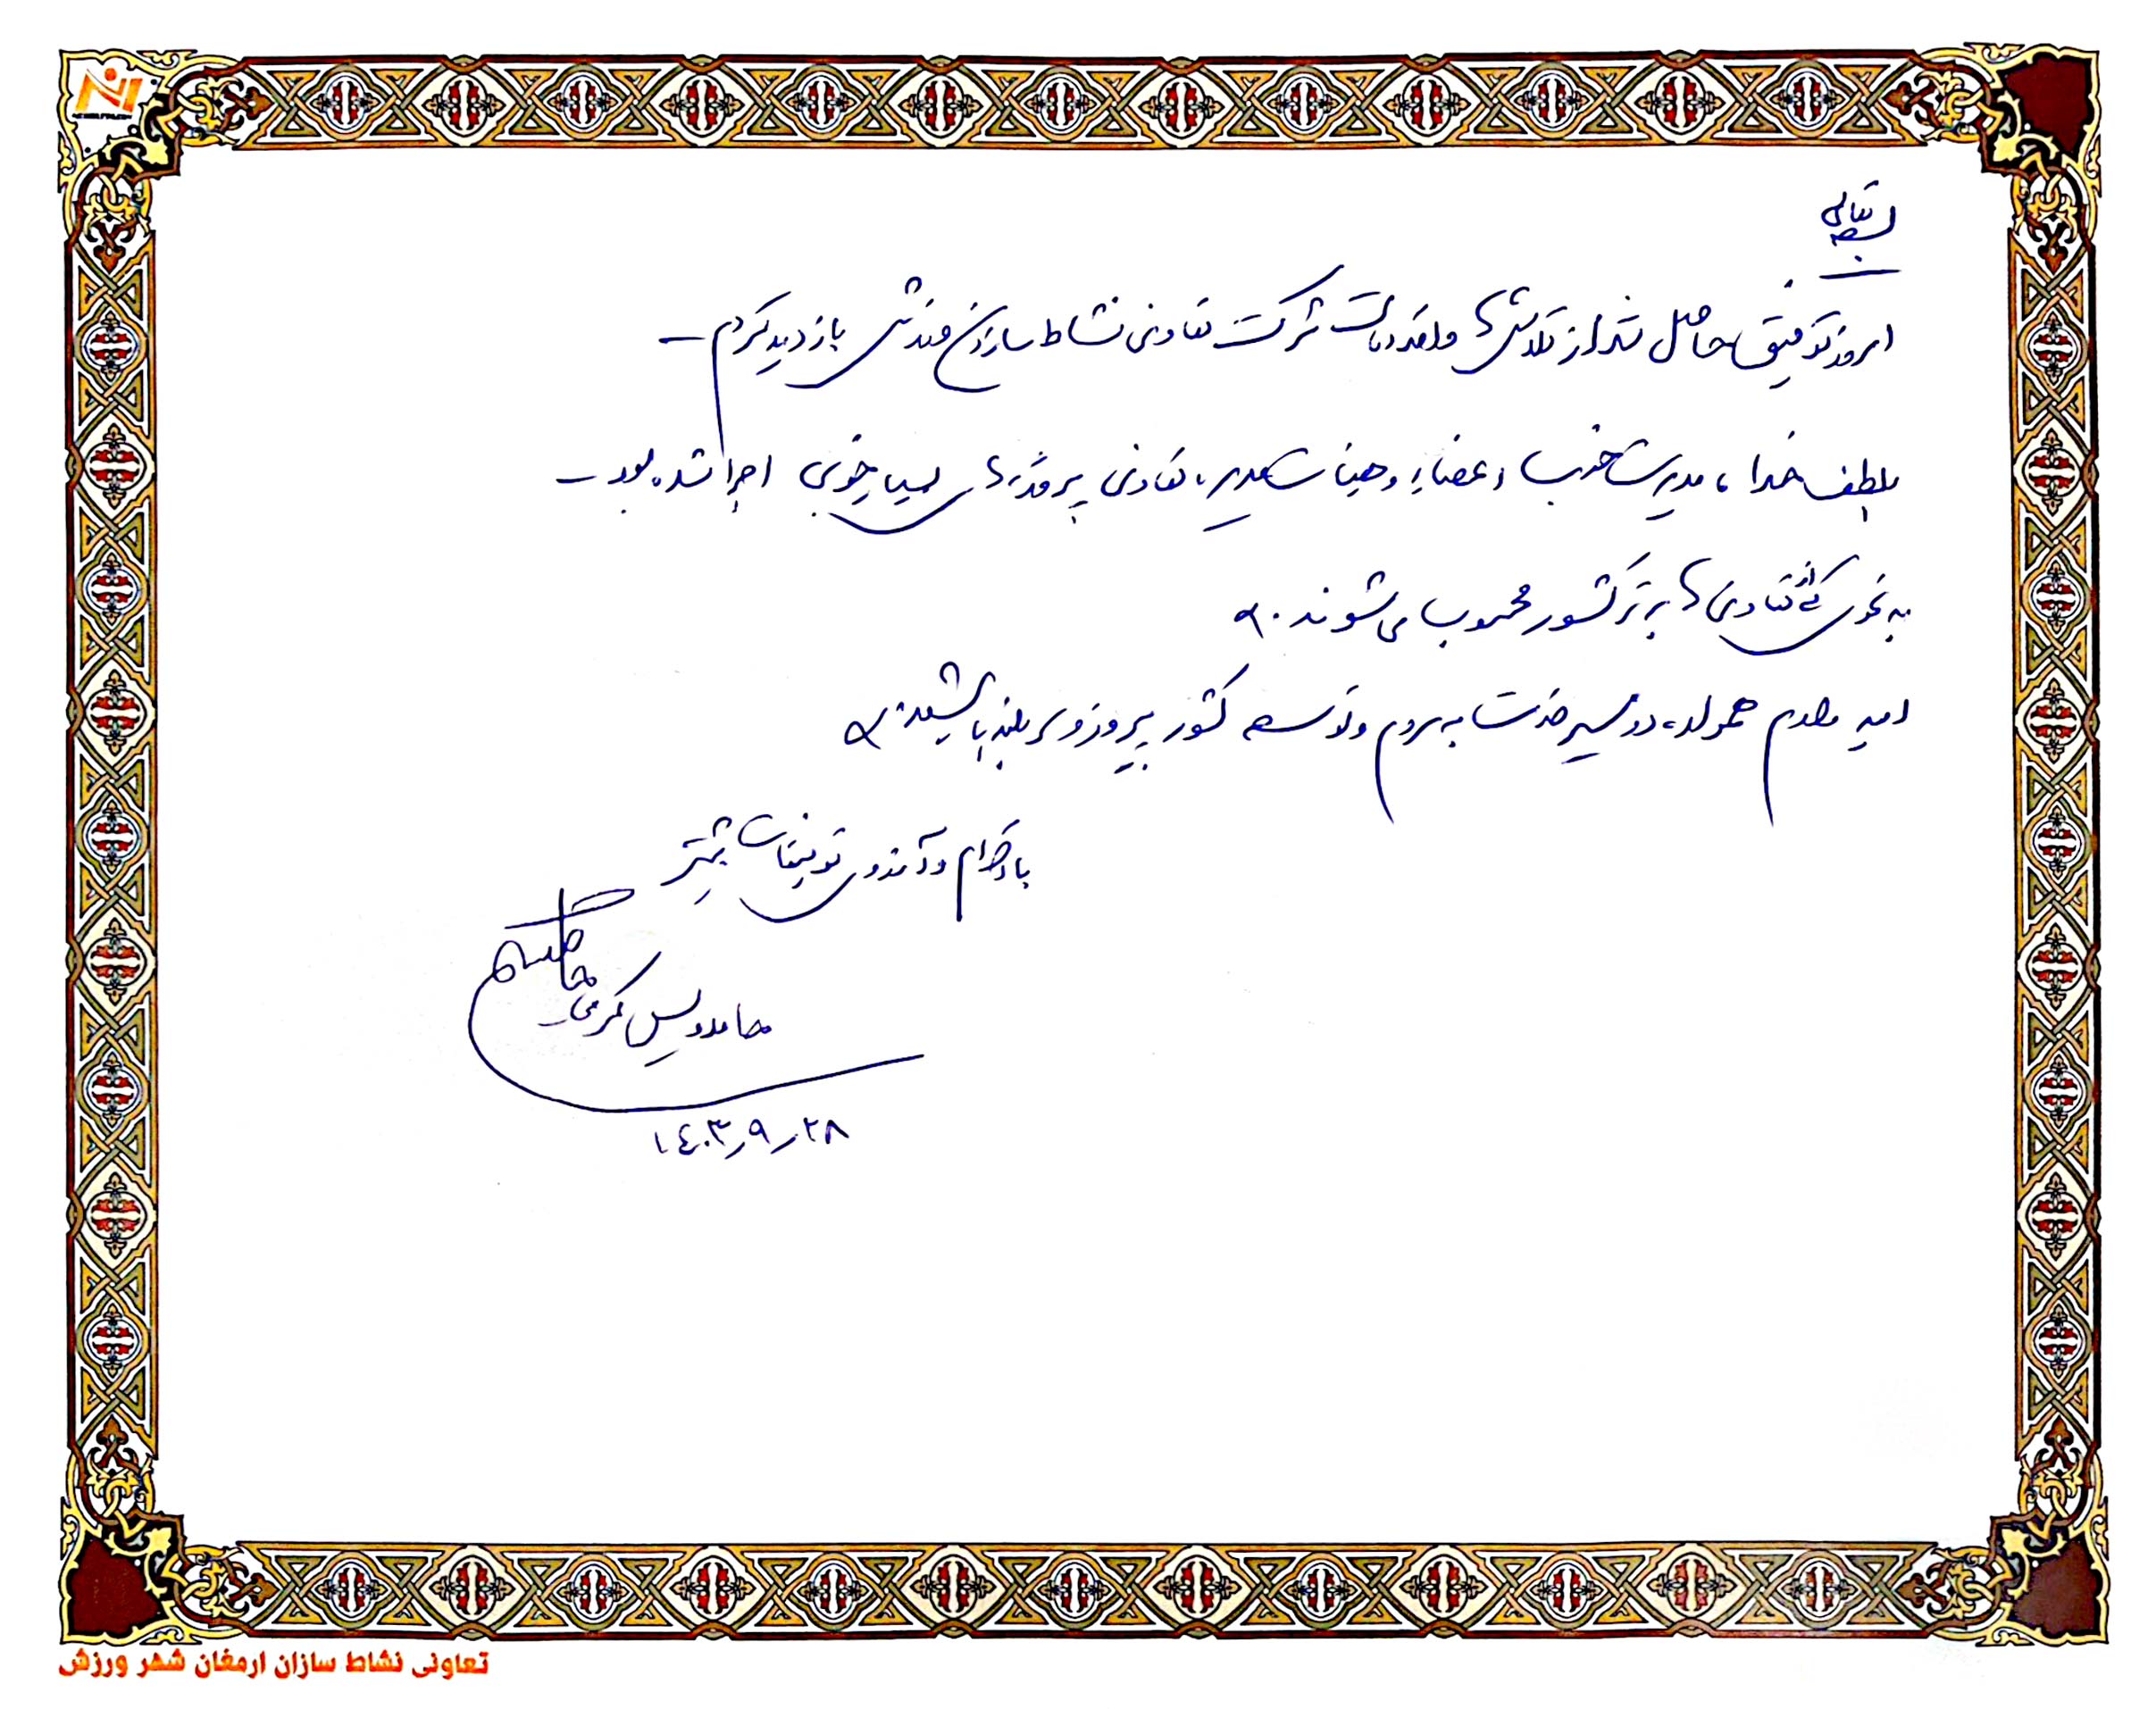 بسمه تعالی
امروز توفیق حاصل شد از تلاش‌ها و اقدامات شرکت تعاونی نشاط سازان ورزشی بازدید کردم
بلطف خدا، مدیریت خوب اعضاء و هیات مدیره تعاونی پروژه‌های بسیار خوبی اجرا شده بود
به نحوی که از تعاونی‌ها برتر کشور محسوب می‌شوند.
امید وارم همواره در مسیر خدمت به مردم و توسعه کشور پیروز و سر بلند باشید.
با احترام و آرزوی توفیقات بیشتر
کرمی
۱۴۰۳٫۹٫۲۸
تعاونی نشاط سازان ارمغان شهر ورزش